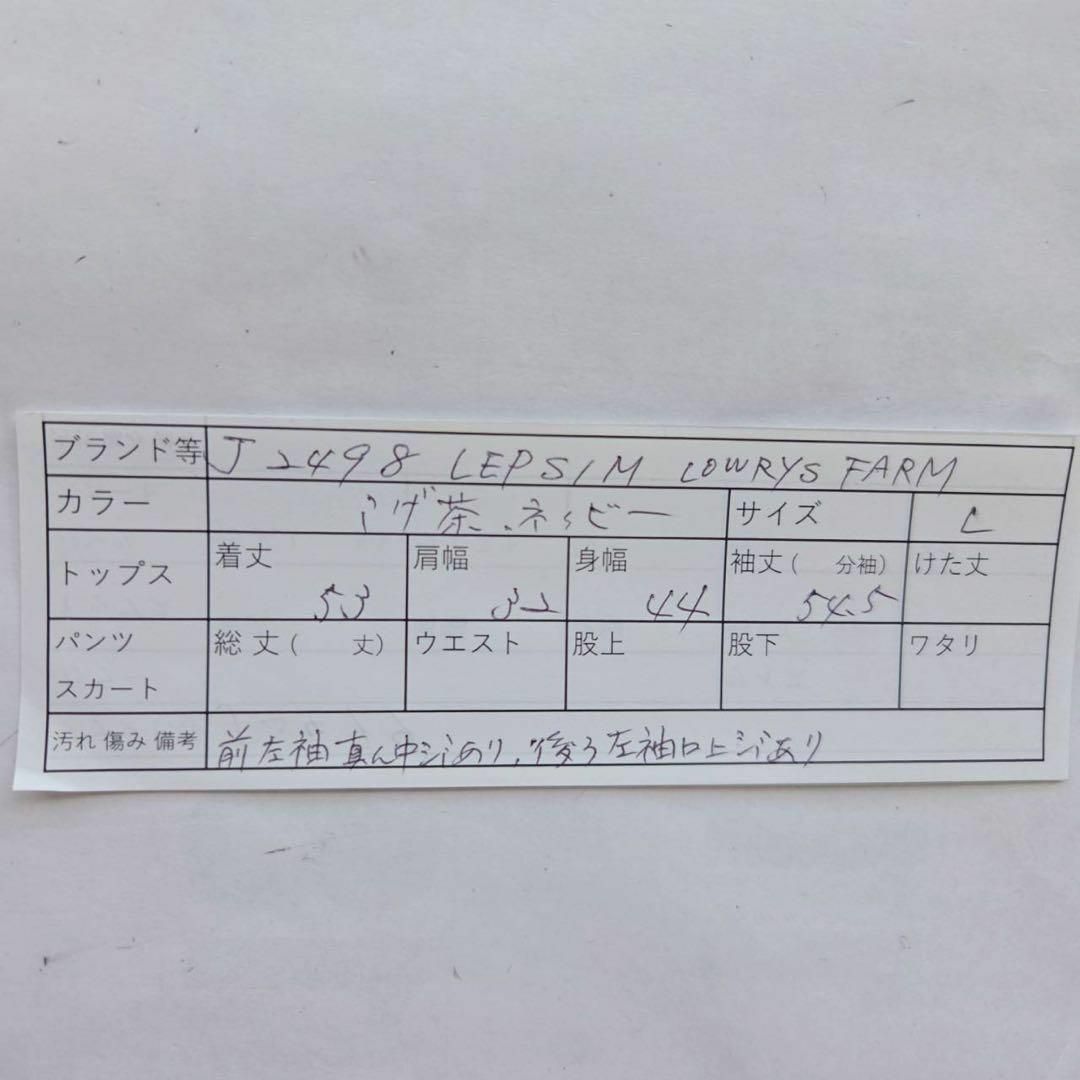 ブランド等 J2498 LEPSIM LOWRYS FARM
カラー こげ茶、ネイビー サイズ L
トップス 着丈 53 肩幅 32 身幅 44 袖丈( 分袖) 54.5 けた丈
パンツ スカート 総丈( 丈) ウエスト 股上 股下 ワタリ
汚れ 傷み 備考 前左袖真ん中シミあり、後ろ左袖口上シミあり